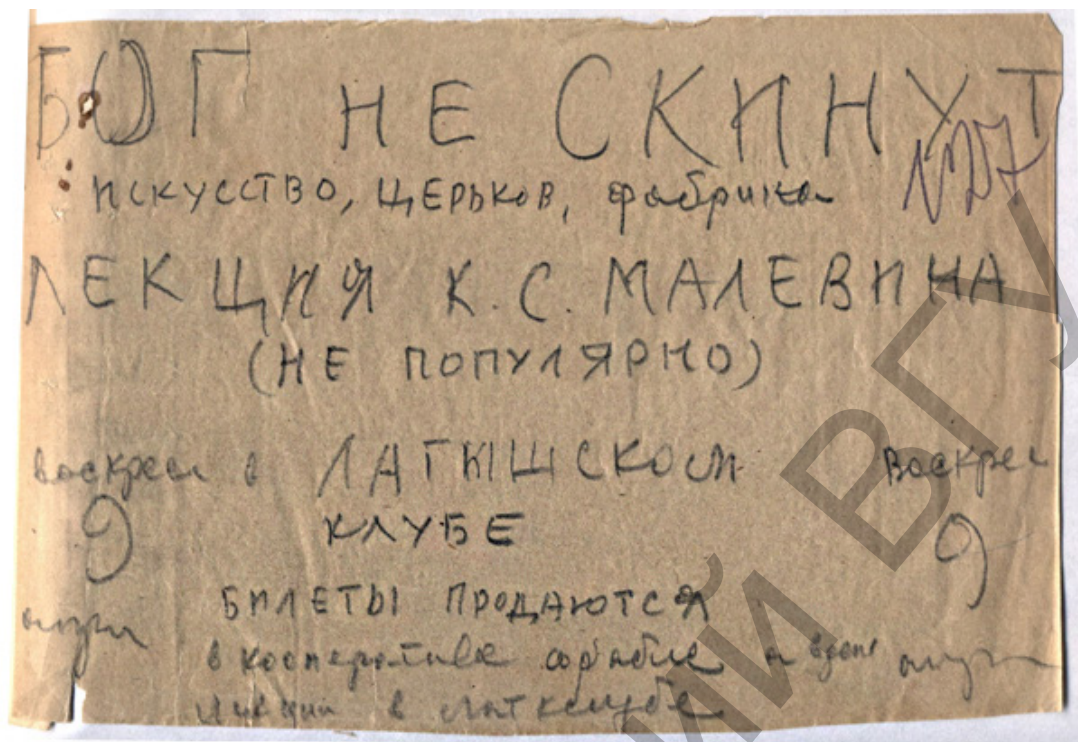 БОГ НЕ СКИНУТ
№27
ИСКУССТВО, ЦЕРЬКОВ, фабрика
ЛЕКЦИЯ К. С. МАЛЕВИЧА
(НЕ ПОПУЛЯРНО)
воскрес в ЛАТЫШСКОМ Воскрес
9 КЛУБЕ 9
БИЛЕТЫ ПРОДАЮТСЯ
в кооперативе
лекции в латклубе
ИЙ ВГУ